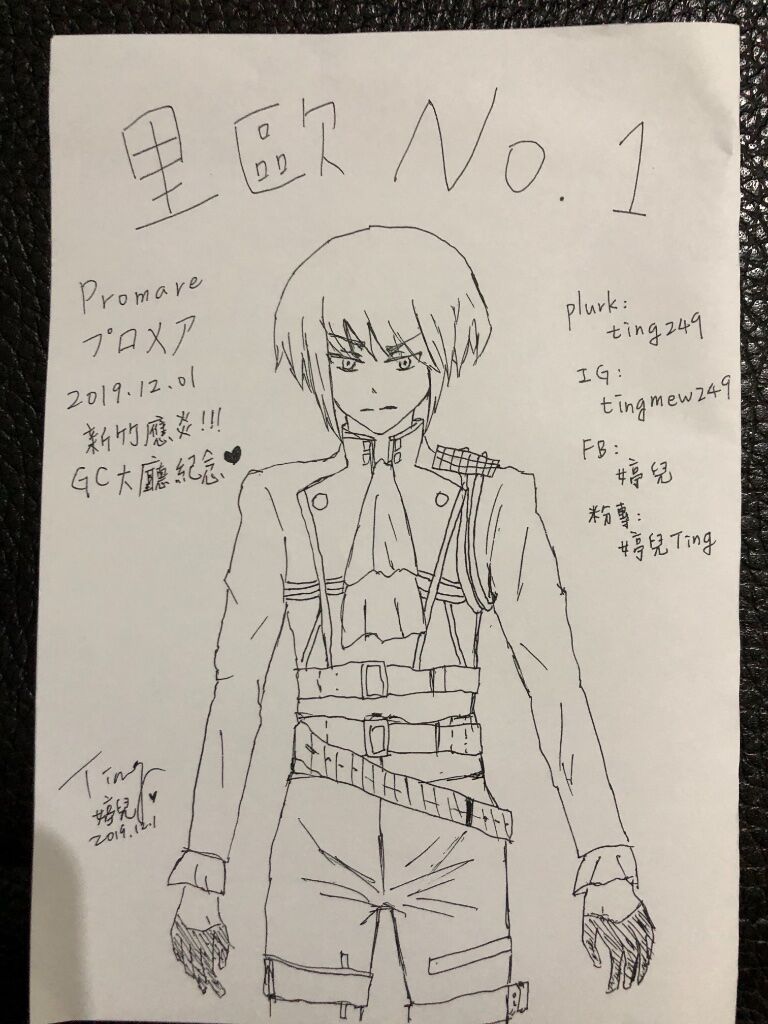 里歐 No.1
Promare
プロメア
2019.12.01
新竹應炎!!!
GC大廳紀念♥
plurk:
ting249
IG:
tingmew249
FB:
婷兒
粉專:
婷兒Ting
Ting
婷兒♥
2019.12.1